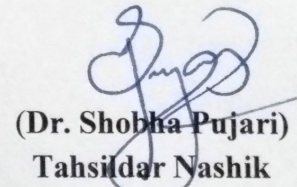 (Dr. Shobha Pujari)
Tahsildar Nashik